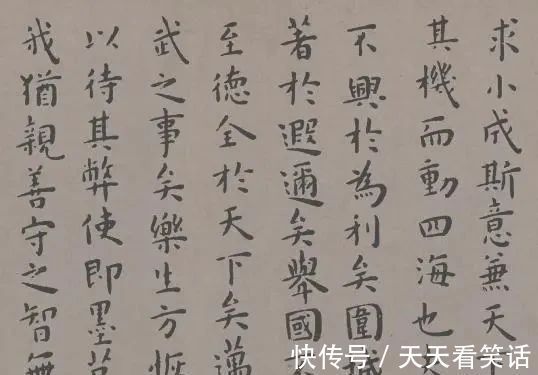 求小成斯意兼天
其機而動四海也
不興於為利矣圍
著於遐邇矣舉國
至德全於天下矣邁
武之事矣樂生方恢
以待其弊使即墨
我猶親善守之智無
快传号 / 天天看笑话